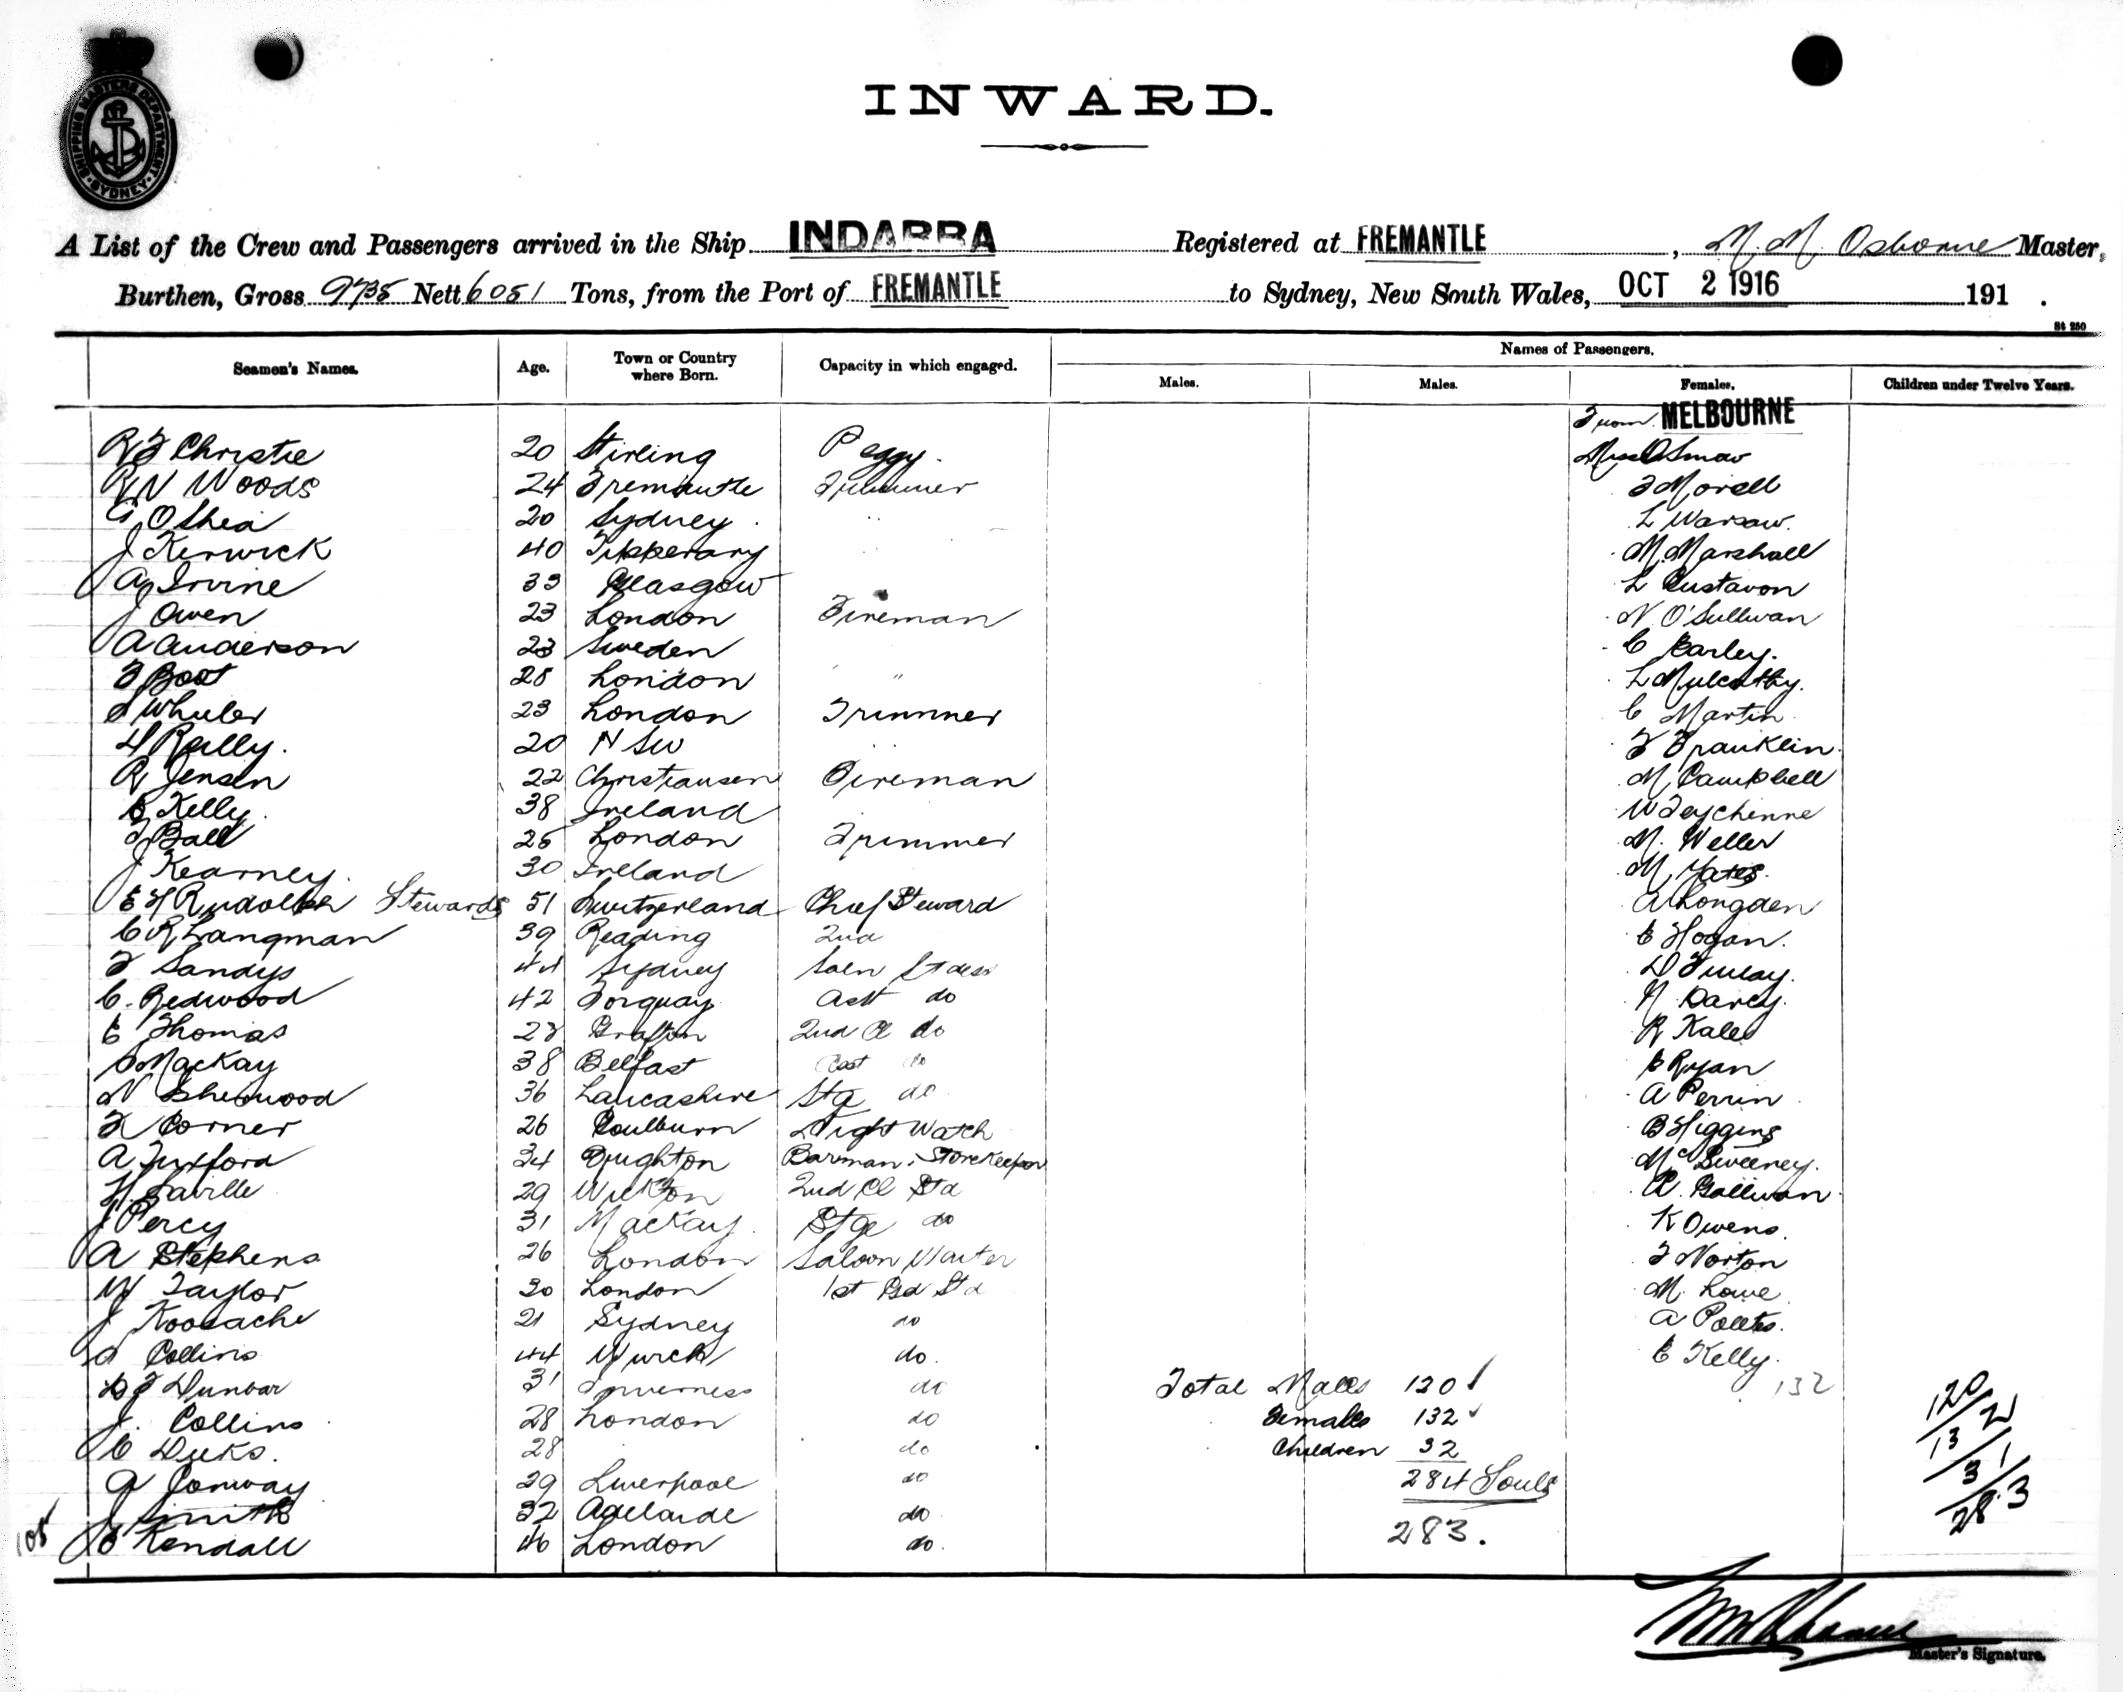 SHIPPING MASTERS DEPARTMENT SYDNEY
INWARD.
A List of the Crew and Passengers arrived in the Ship INDARRA Registered at FREMANTLE, M. M. Osborne Master,
Burthen, Gross 9735 Nett 6051 Tons, from the Port of FREMANTLE to Sydney, New South Wales, OCT 2 1916 191 .
St 250
Seamen's Names. Age. Town or Country where Born. Capacity in which engaged. Names of Passengers.
Males. Males. Females. Children under Twelve Years.
From MELBOURNE
R F Christie 20 Stirling Peggy. Miss O Smaw
R W Woods 24 Fremantle Trimmer F Morell
G O Shea 20 Sydney. L Warsaw.
J Kerwick 40 Tipperary M. Marshall
A Irvine 33 Glasgow L Gustavon
J Owen 23 London Fireman N O'Sullivan
A Anderson 23 Sweden C Barley.
F Boot 28 London " L Mulcathy.
J Wheeler 23 London Trimmer C Martin
H Reilly. 20 N S W F Franklin.
R Jensen 22 Christiansen Fireman M Campbell
E Kelly 38 Ireland W Teychenne
F Ball 25 London Trimmer M. Weller
J Kearney. 30 Ireland M Yates.
E H Rudolph Stewards 51 Switzerland Chief Steward A Longden
C R Langman 39 Reading 2nd E Hogan.
F Sandys 44 Sydney Saln Stdess D Finlay.
C. Redwood 42 Torquay Asst do N Darcy.
E Thomas 28 Grafton 2nd Cl do R Kale
S Mackay 38 Belfast Asst do E Ryan
N Sherwood 36 Lancashire Stg do A Perrin
F Corner 26 Goulburn Night Watch B Higgins
A Tuxford 34 Brighton Barman, Storekeeper Mc Sweeney.
H Saville 29 2nd Cl Std A. Gallivan
J Percy 31 Mackay. Stge do K Owens.
A Stephens 26 London Saloon Waiter F Norton
W Taylor 30 London 1st Gd Std M. Lowe
J 21 Sydney do A
Collins 44 do. E Kelly.
F Dunbar 31 Inverness do Total Males 120 132
J. Collins 28 London do Females 132
C Duks. 28 do Children 32
A Conway 29 Liverpool do 284 Souls
J Smith 32 Adelaide do
105 Kendall 46 London do. 283.
120/2
13/1
3
28.3
Master's Signature.